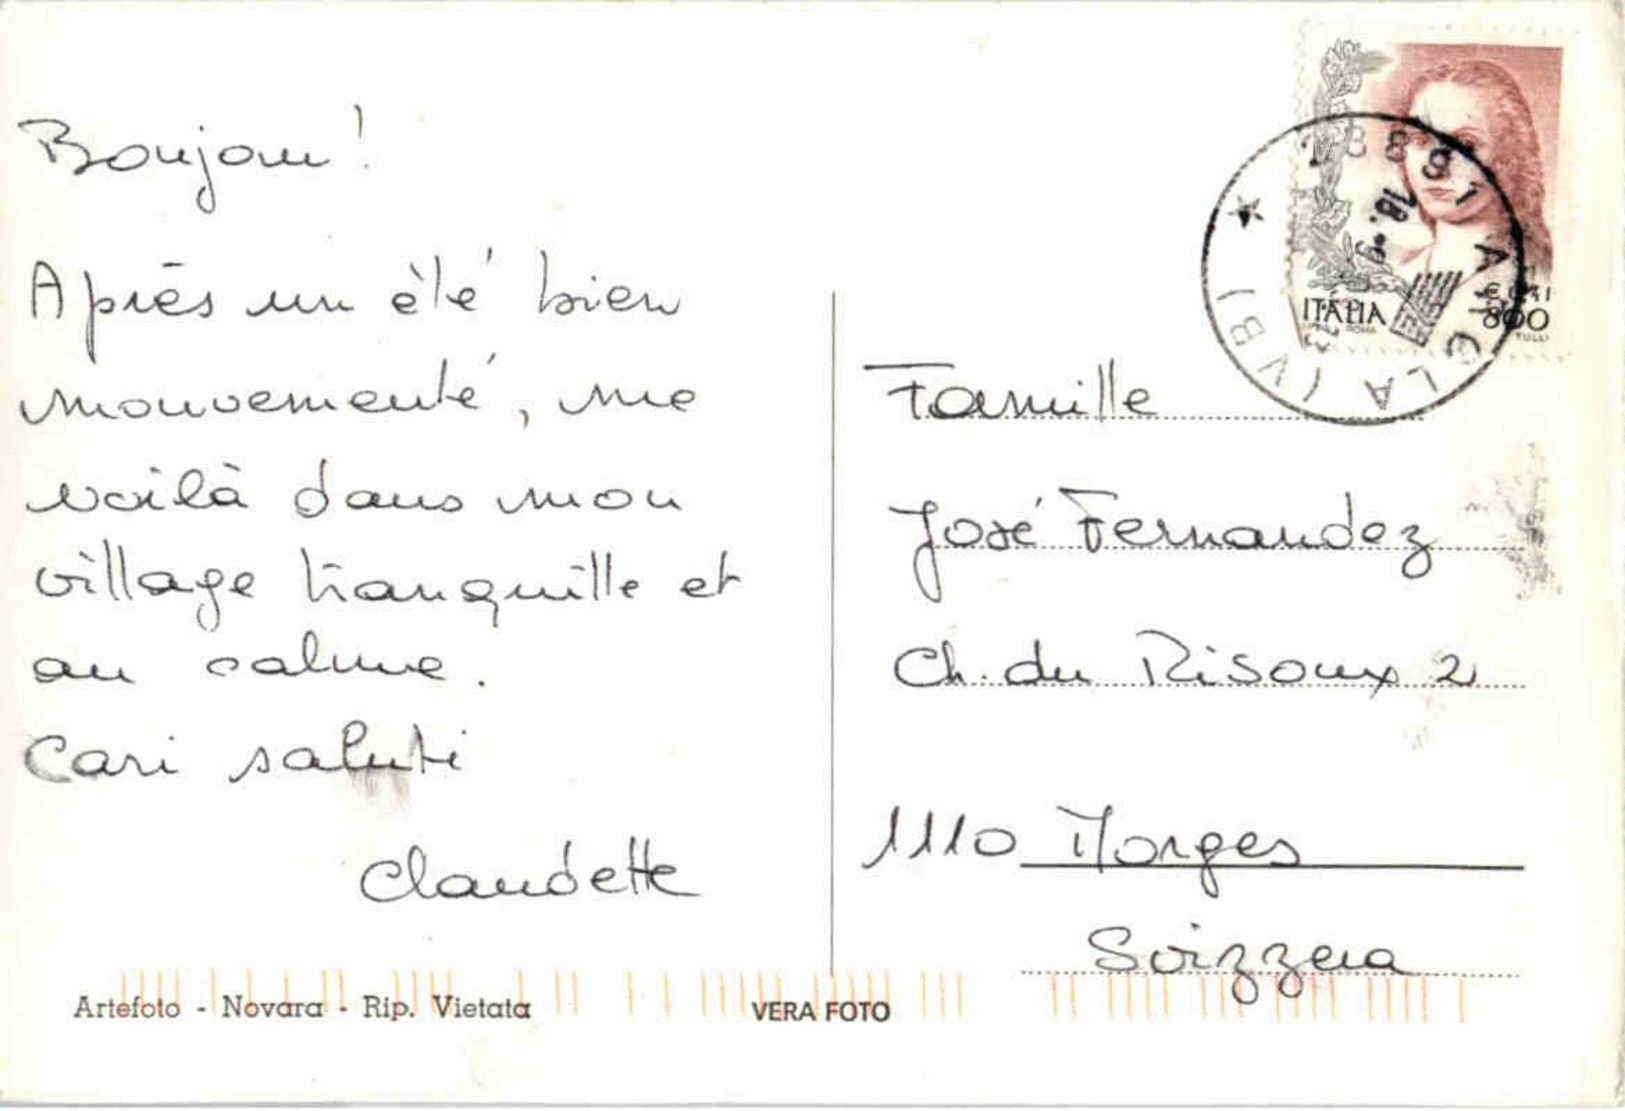 Bonjour!
Après un été bien
mouvementé, me
voilà dans mon
village tranquille et
au calme.
Cari saluti
Claudette
Artefoto - Novara - Rip. Vietata
VERA FOTO
ITALIA
800
Famille
José Fernandez
Ch. du Risoux 2
1110 Morges
Svizzera